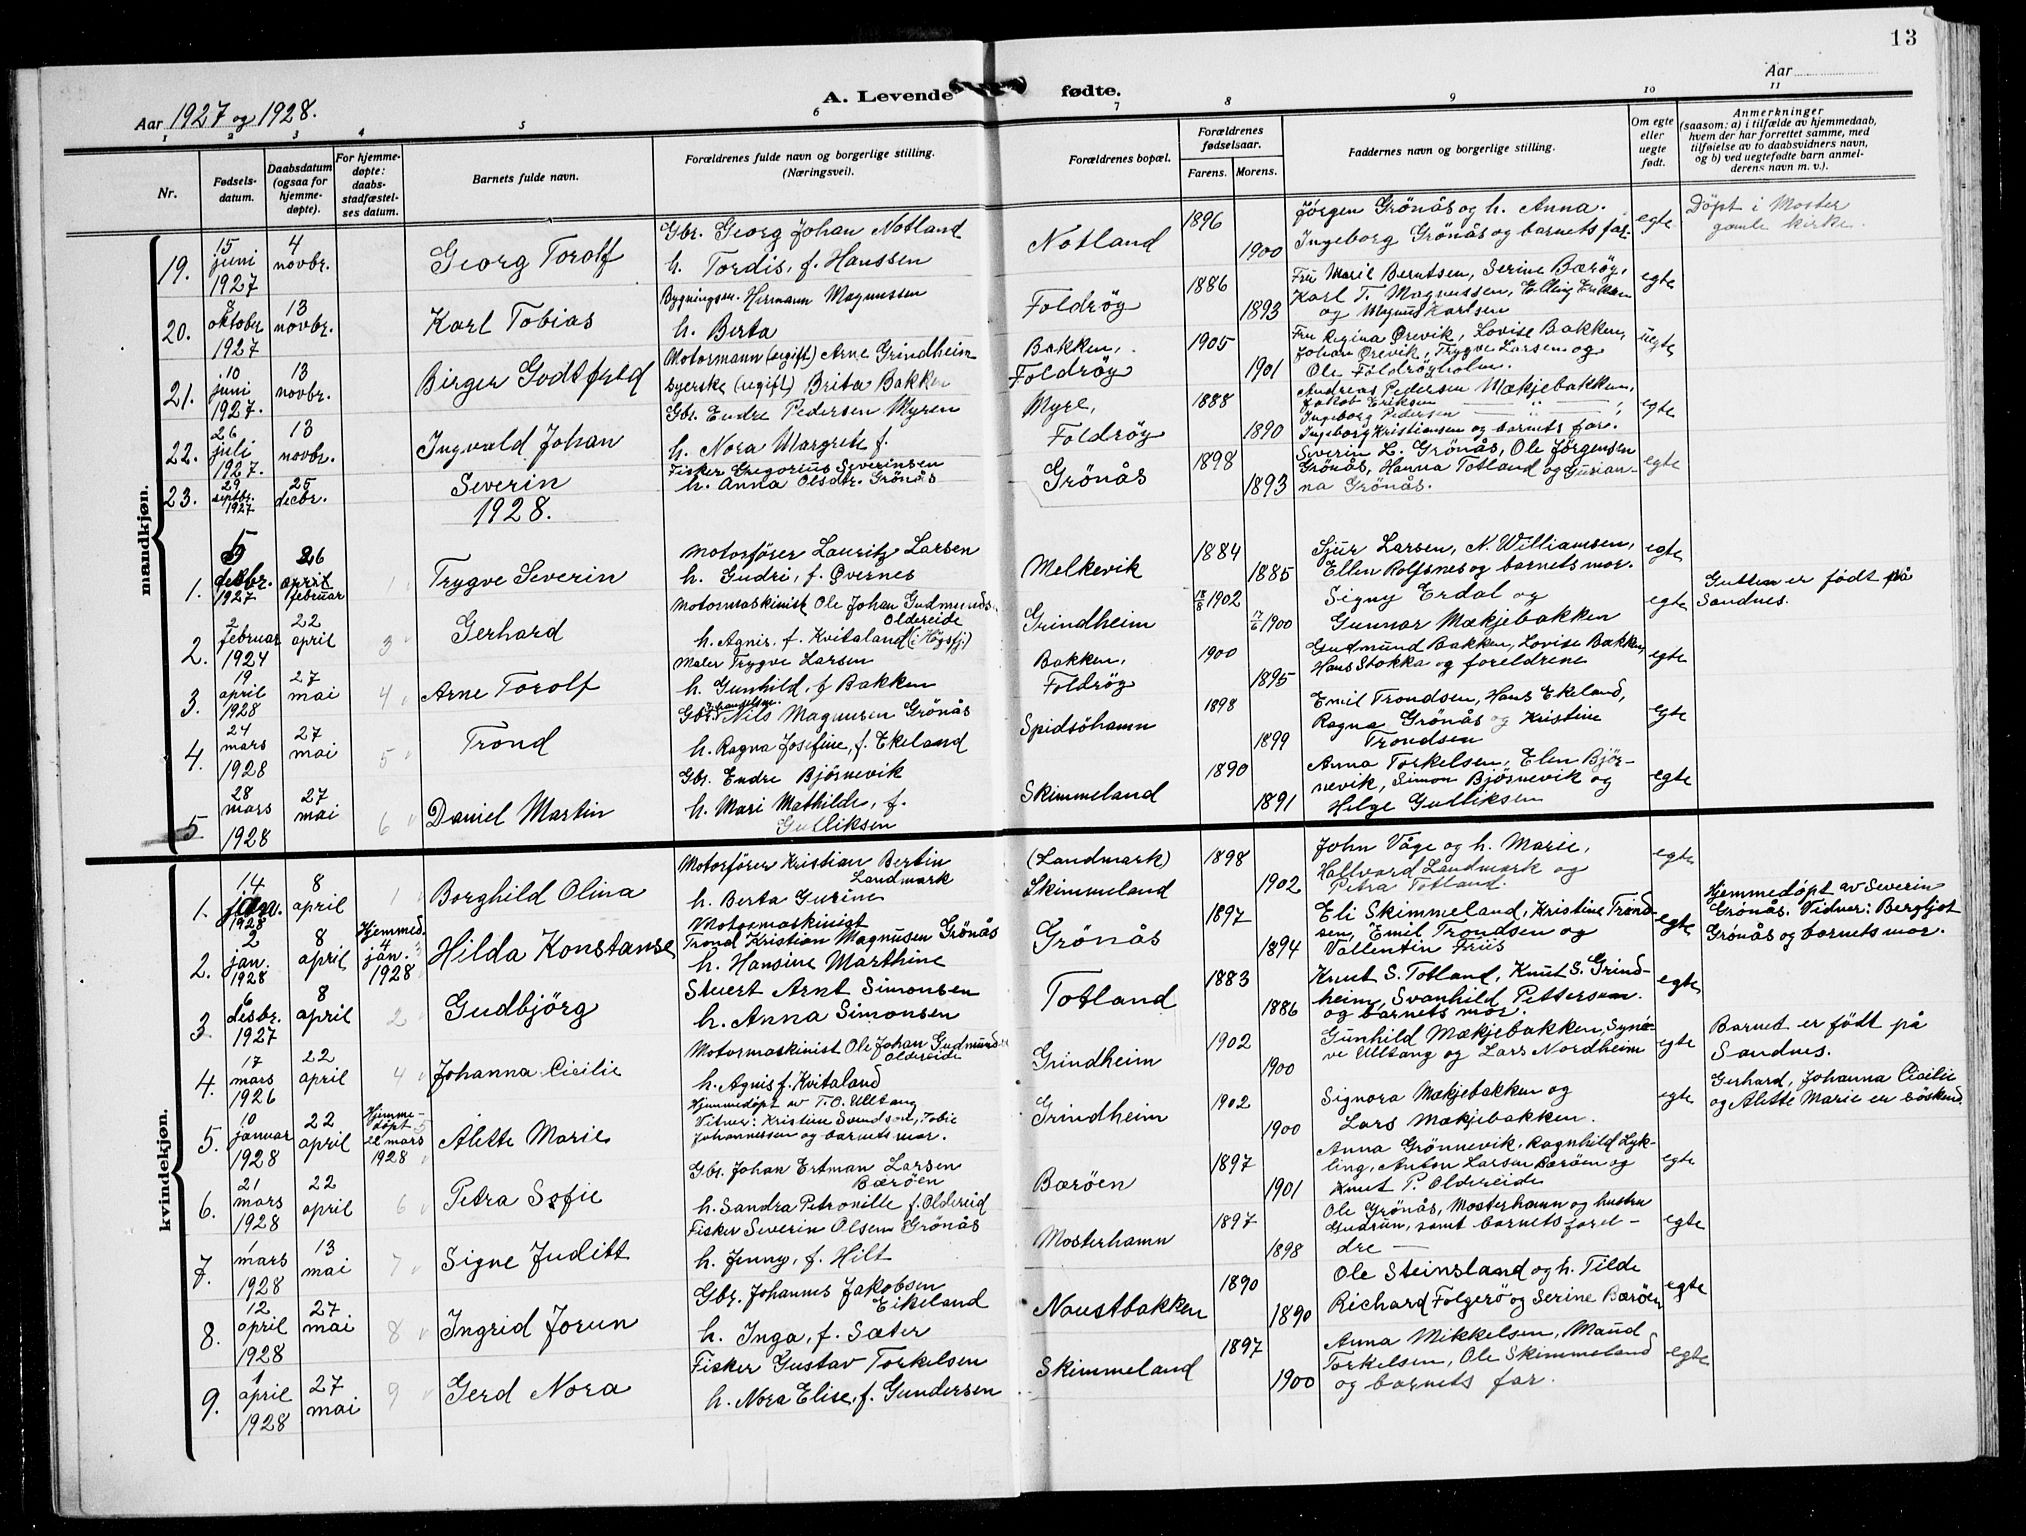 13
Aar 1927 og 1928.
A. Levende fødte.
Aar
1 2 3 4 5 6 7 8 9 10 11
Nr.
Fødsels-
datum.
Daabsdatum
(ogsaa for
hjemme-
døpte).
For hjemme-
døpte:
daabs-
stadfæstel-
ses datum.
Barnets fulde navn.
Forældrenes fulde navn og borgerlige stilling.
(Næringsvei).
Forældrenes bopæl.
Forældrenes
fødselsaar.
Farens. Morens.
Faddernes navn og borgerlige stilling.
Om egte
eller
uegte
født.
Anmerkninger
(saasom: a) i tilfælde av hjemmedaab,
hvem der har forrettet samme, med
tilføielse av to daabsvidners navn,
og b) ved uegtefødte barn anmel-
derens navn m. v.).
mandkjøn.
19.
15
juni
1927
4
novbr.
Georg Torolf
Gbr. Georg Johan Notland
h. Tordis, f. Hanssen
Notland
1896
1900
Jörgen Grönås og h. Anna.
Ingeborg Grönås og barnets far.
egte
Döpt i Moster
gamle kirke.
20.
8
oktober
1927
13
novbr.
Karl Tobias
Bygningssn. Hermann Magnussen
h. Berta
Foldröy
1886
1893
Fru Maril Berntsen, Serine Bæröy,
Karl T. Magnussen, Elling Eriksen
og Magnus Karlsen
egte
21.
10
juni
1927.
13
novbr.
Birger Godtfred
Motormann (ugift) Arne Grindheim
Syerske (ugift) Brita Bakken
Bakken,
Foldröy
1905
1901
Fru Regina Ørevik, Lovise Bakken,
Johan Ørevik, Trygve Larsen og
Ole Foldröyholm.
uegte
22.
26
juli
1927.
13
novbr.
Ingvald Johan
Gbr. Endre Pedersen Myren
h. Nora Margrete f.
Myre,
Foldröy
1888
1890
Andreas Pedersen Mækjebakken,
Jakob Eriksen — " — ,
Ingeborg Pedersen — " — ,
Ingeborg Kristiansen og barnets far.
egte
23.
29
septbr.
1927
25
decbr.
Severin
Fisker Gregorius Severinsen
h. Anna Olsdtr. Grönås
Grönås
1898
1893
Severin L. Grönås, Ole Jörgensen
Grönås, Hanna Totland og Gurian-
na Grönås.
egte
1928.
1.
5
desbr.
1927
26
april
februar
1
Trygve Severin
Motorfører Lauritz Larsen
h. Gudri, f. Øvernes
Melkevik
1884
1885
Sjur Larsen, N. Williamsen,
Ellen Rolfsnes og barnets mor.
egte
2.
2
februar
1924
22
april
3
Gerhard
Motormaskinist Ole Johan Gudmunds.
Oldereide
h. Agnis. f. Kvitaland (i Högsfj.)
Grindheim
18/8 1902
7/6 1900
Signy Erdal og
Gunnar Mækjebakken
egte
Gutten er født på
Sandnes.
3.
19
april
1928
27
mai
4
Arne Torolf
Maler Trygve Larsen
h. Gunhild, f. Bakken
Bakken,
Foldröy
1900
1895
Gudmund Bakken, Lovise Bakken,
Hans Stokka og foreldrene
egte
4.
24
mars
1928
27
mai
5
Trond
Gbr. Nils Magnusen Grönås
h. Ragna Josefine, f. Ekeland
Spidsöhamn
1898
1899
Emil Trondsen, Hans Ekeland,
Ragna Grönås og Kristine
Trondsen
egte
5
28
mars
1928
27
mai
6
Daniel Martin
Gbr. Endre Bjørnevik
h. Mari Mathilde, f.
Gulliksen
Skimmeland
1890
1891
Anna Torkelsen, Elen Björ-
nevik, Simon Bjørnevik og
Helge Gulliksen
egte
kvindekjøn.
1.
14
jan.
1928
8
april
1
Borghild Olina
Motorfører Kristian Bertin
Landmark
h. Berta Gurine
(Landmark)
Skimmeland
1898
1902
John Våge og h. Marie,
Hallvard Landmark og
Petra Totland.
egte
2.
2
jan.
1928
8
april
Hjemmed.
4
jan.
1928
Hilda Konstanse
Motormaskinist
Trond Kristian Magnusen Grönås
h. Hansine Marthine
Grönås
1897
1894
Eli Skimmeland, Kristine Trond-
sen, Emil Trondsen og
Vallentin Friis
egte
Hjemmedöpt av Severin
Grönås. Vidner: Bergljot
Grönås og barnets mor.
3.
6
desbr.
1927
8
april
2
Gudbjörg
Stuert Arnt Simonsen
h. Anna Simonsen
Totland
1883
1886
Knut S. Totland, Knut S. Grind-
heim, Svanhild Pettersen
og barnets mor.
egte
4.
17
mars
1926
22
april
4
Johanna Cicilie
Motormaskinist Ole Johan Gudmunds
Oldereide
h. Agnis f. Kvitaland
Grindheim
1902
1900
Gunhild Mækjebakken, Synö-
ve Ulltang og Lars Nordheim
egte
Barnet er født på
Sandnes.
5.
10
januar
1928
22
april
Hjemme-
döpt
22 mars
1928
5
Alette Marie
Hjemmedöpt av T. O. Ulltang
Vitner: Kristine Svendsen, Tobie
Johannessen og barnets mor.
Grindheim
1902
1900
Signora Mækjebakken og
Lars Mækjebakken.
egte
Gerhard, Johanna Cicilie
og Alette Marie er sösken
6.
21
mars
1928
22
april
6
Petra Sofie
Gbr. Johan Ertman Larsen
Bæröen
h. Sandra Petronille f. Oldereid
Bæröen
1897
1901
Anna Grönnevik, Ragnhild Lyk-
ling, Anton Larsen Bæröen og
Knut P. Oldereide
egte
7.
1
mars
1928
13
mai
7
Signe Juditt
Fisker Severin Olsen Grönås
h. Jenny, f. Hilt
Mosterhamn
1897
1898
Ole Grönås, Mosterhamn og hustru
Gudrun, samt barnets forel-
dre —
egte
8.
12
april
1928
27
mai
8
Ingrid Jorun
Gbr. Johannes Jakobsen
Eikeland
h. Inga, f. Sæter
Naustbakken
1890
1890
Ole Steinsland og h. Tilde
Richard Folgerö og Serine Bæröen
egte
9.
1
april
1928
27
mai
9
Gerd Nora
Fisker Gustav Torkelsen
h. Nora Elise, f. Gundersen
Skimmeland
1897
1900
Anna Mikkelsen, Maud
Torkelsen, Ole Skimmeland
og barnets far.
egte